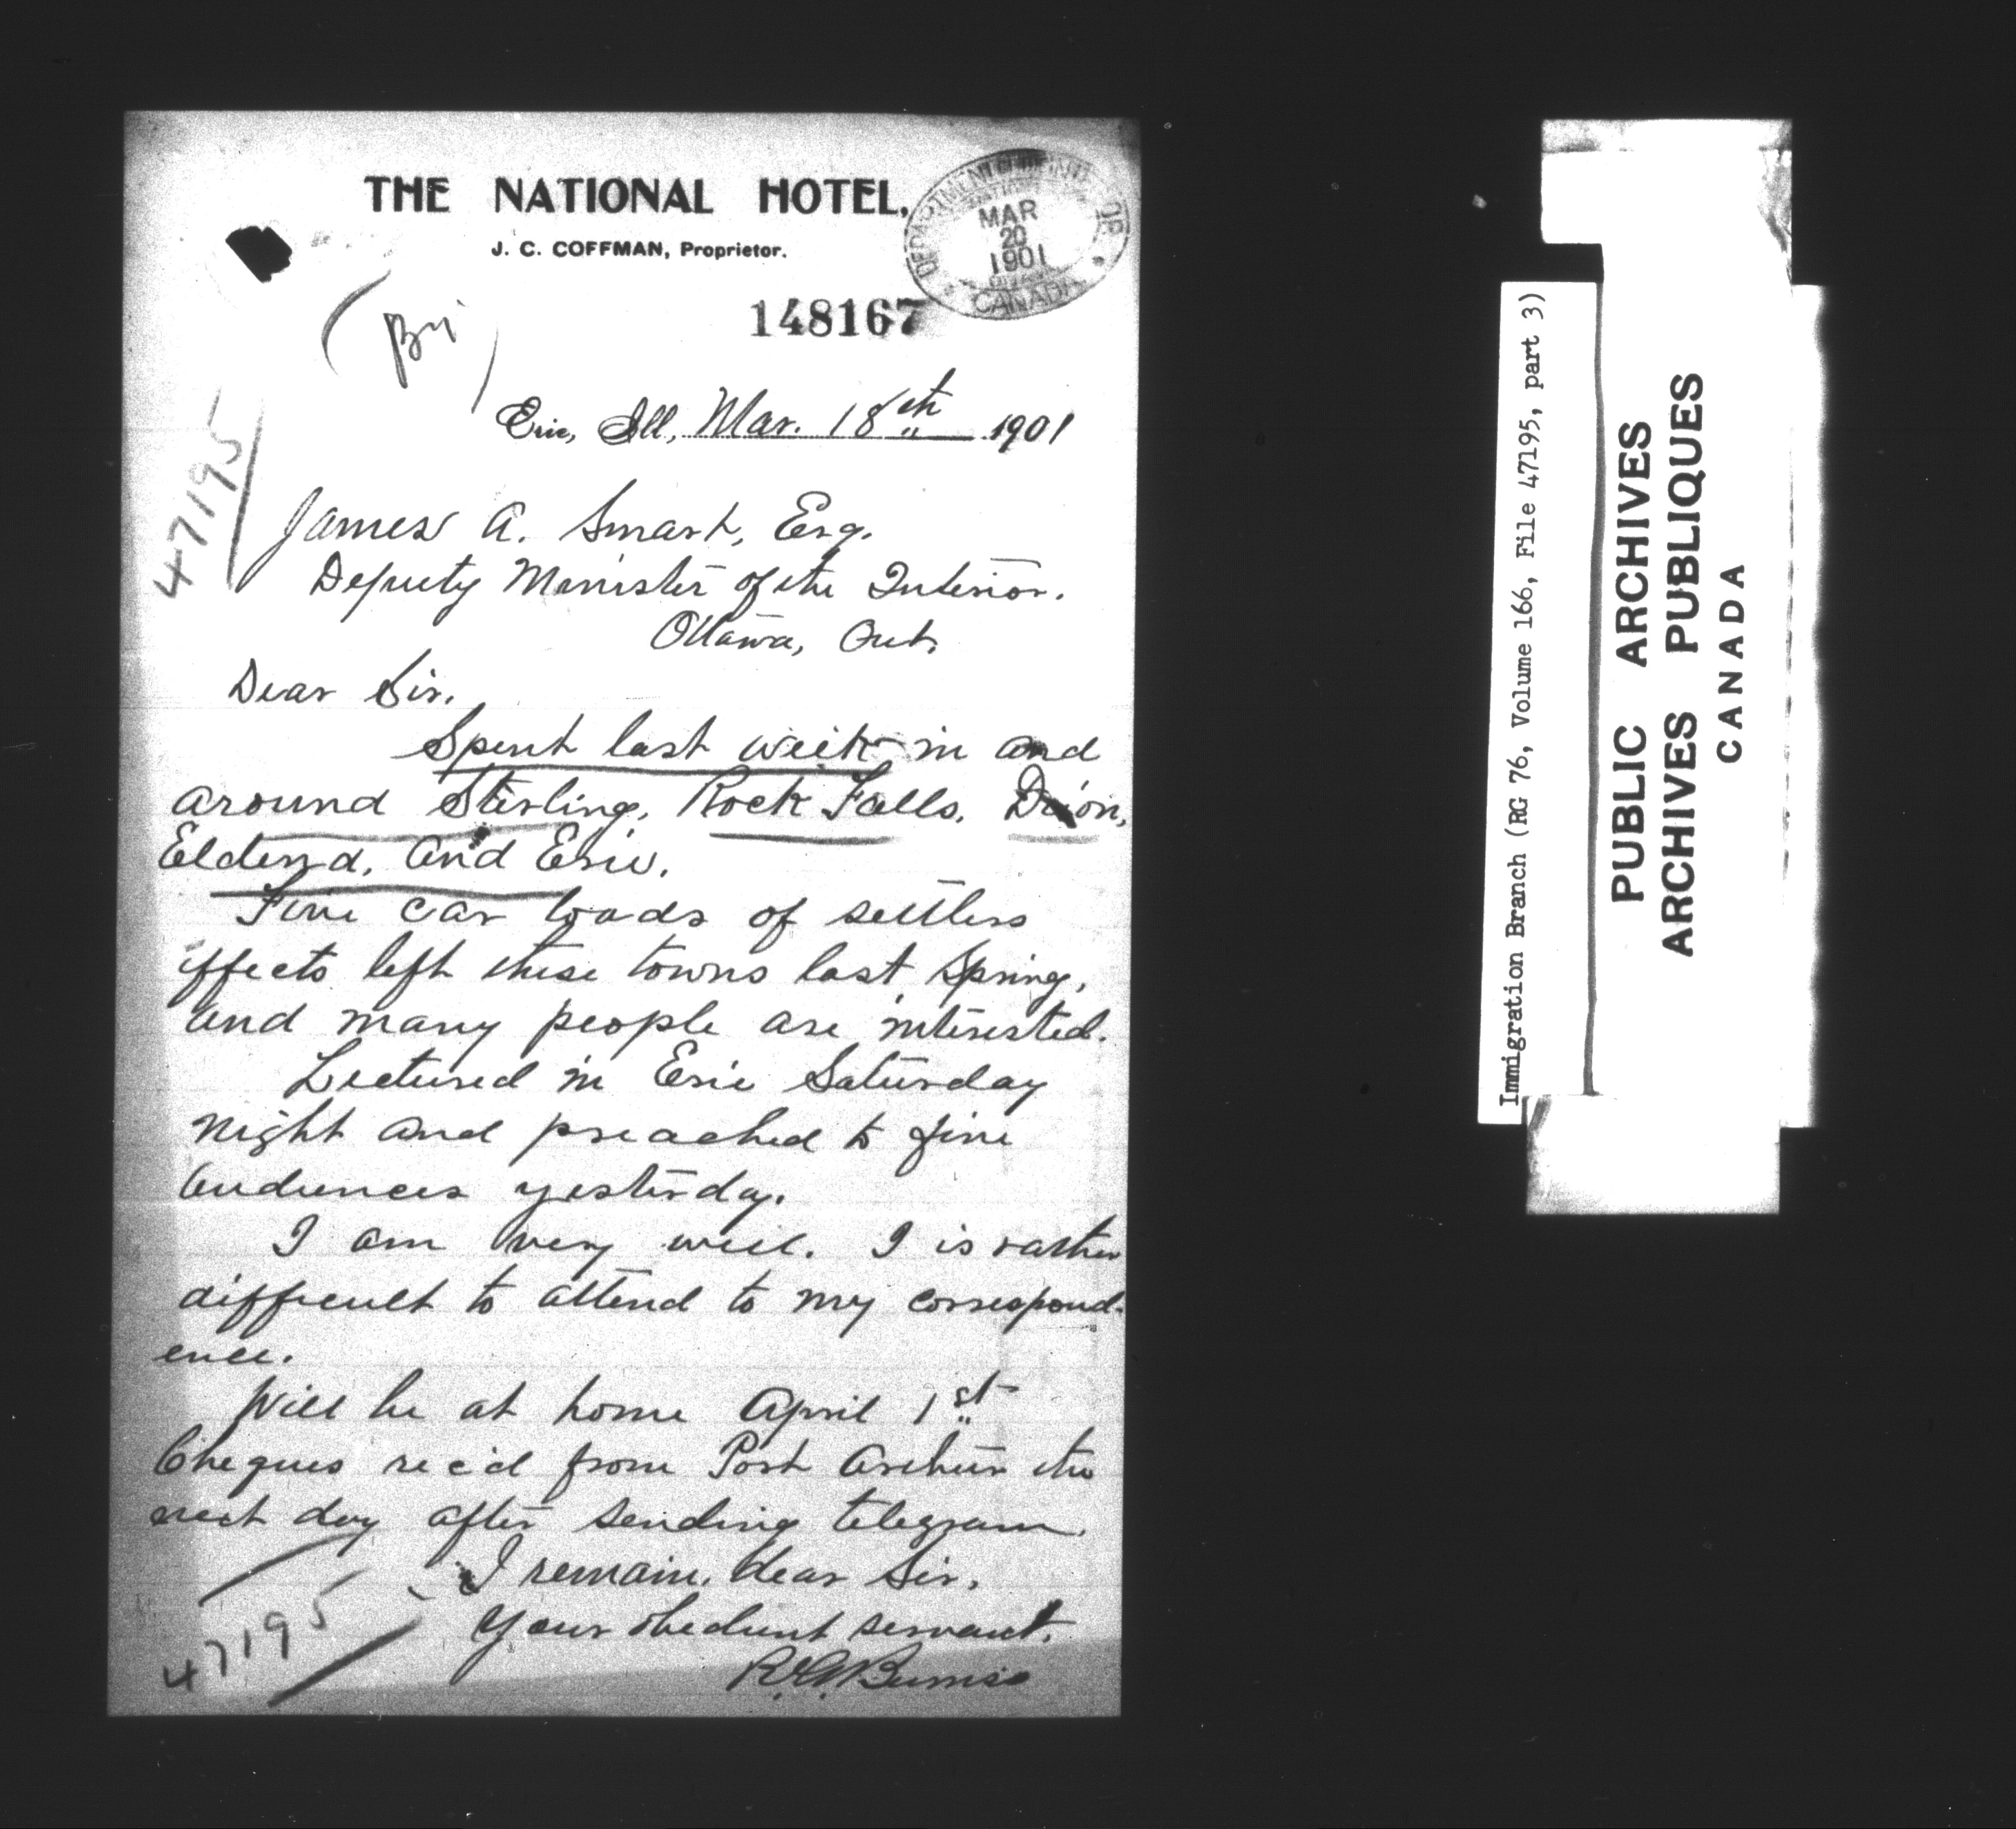 THE NATIONAL HOTEL,
J. C. COFFMAN, Proprietor.
DEPARTMENT OF INTERIOR
MAR
20
1901
CANADA
148167
Erie, Ill, Mar. 18th 1901
47195
James A. Smart, Esq.
Deputy Minister of the Interior.
Ottawa, Ont.
Dear Sir.
Spent last week in and
around Sterling, Rock Falls, Dixon,
Eldena, and Erie.
Five car loads of settlers
effects left these towns last Spring,
and many people are interested.
Lectured in Erie Saturday
night and preached to fine
audiences yesterday.
I am very well. I is rather
difficult to attend to my correspond-
ence.
Will be at home April 1st
Cheques rec'd from Port Arthur the
next day after sending telegram.
I remain, dear Sir,
Your obedient servant.
47195
Immigration Branch (RG 76, Volume 166, File 47195, part 3)
PUBLIC ARCHIVES
ARCHIVES PUBLIQUES
CANADA